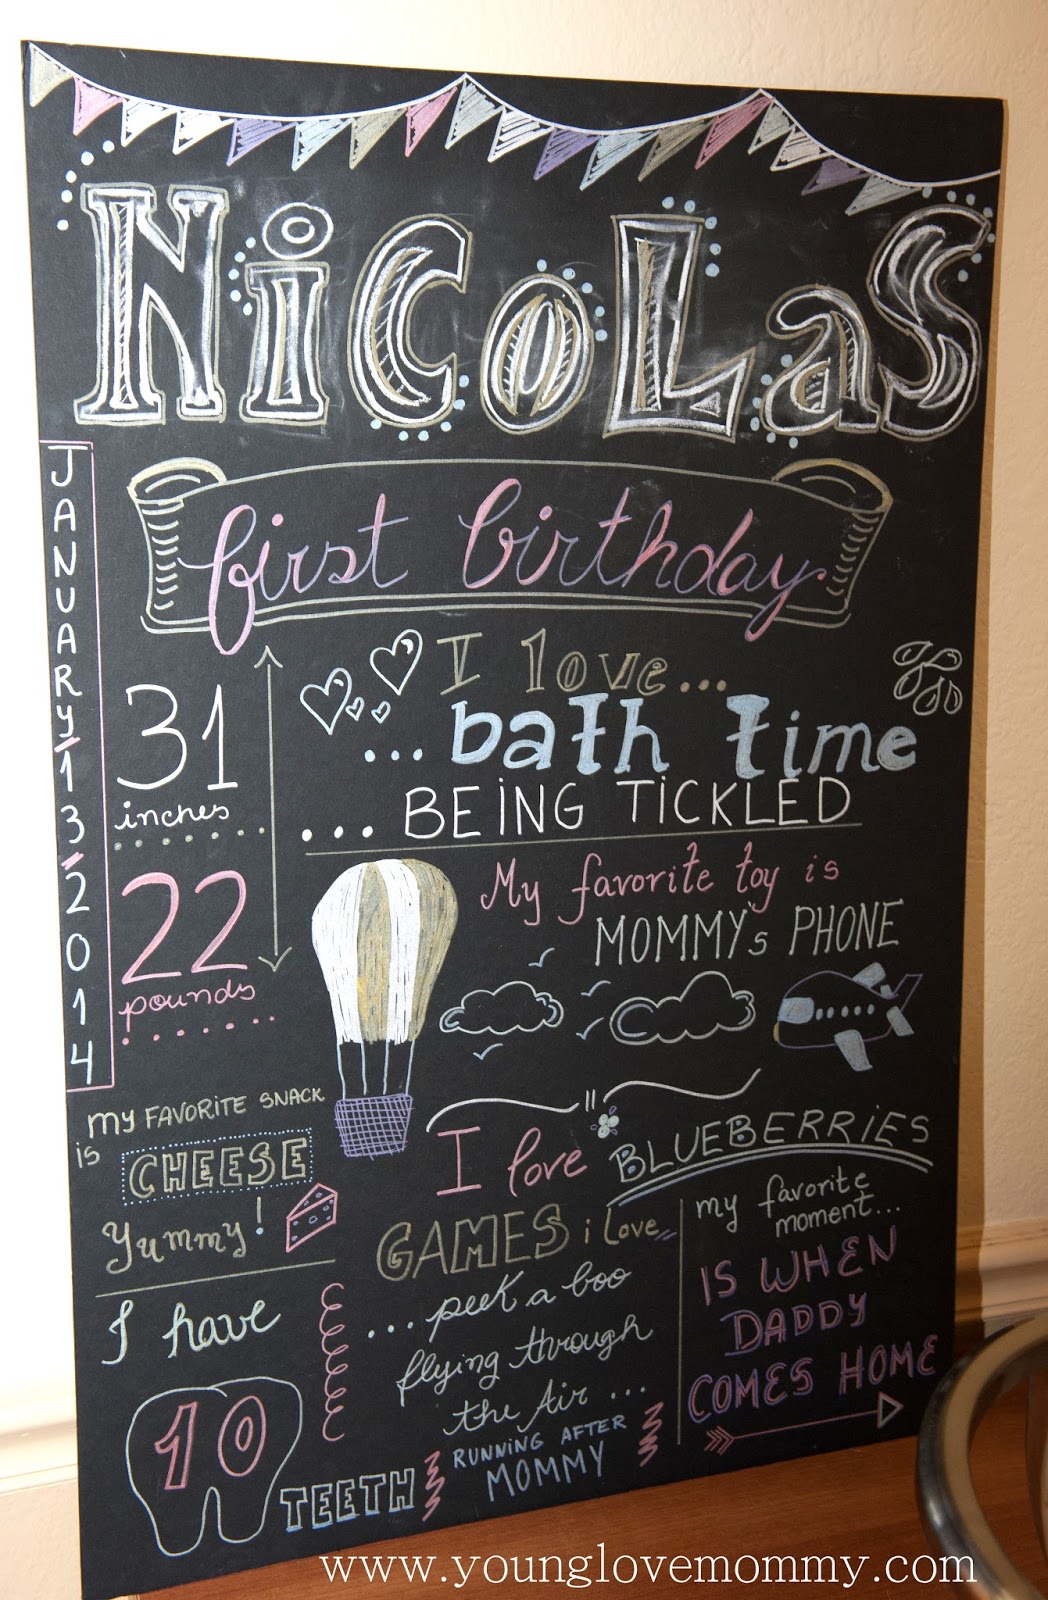 NiCoLaS
first birthday
JANUARY/13/2014
31
inches
22
pounds
I love...
...bath time
... BEiNG TiCKLED
My favorite toy is
MOMMY's PHONE
my FAVORITE SNACK
is
CHEESE
Yummy!
I love BLUEBERRiES
GAMES i Love
... peek a boo
flying through
the Air ...
RUNNiNG AFTER
MOMMY
my favorite
moment...
IS WHEN
DADDY
COMES HOME
I have
10
TEETH
www.younglovemommy.com